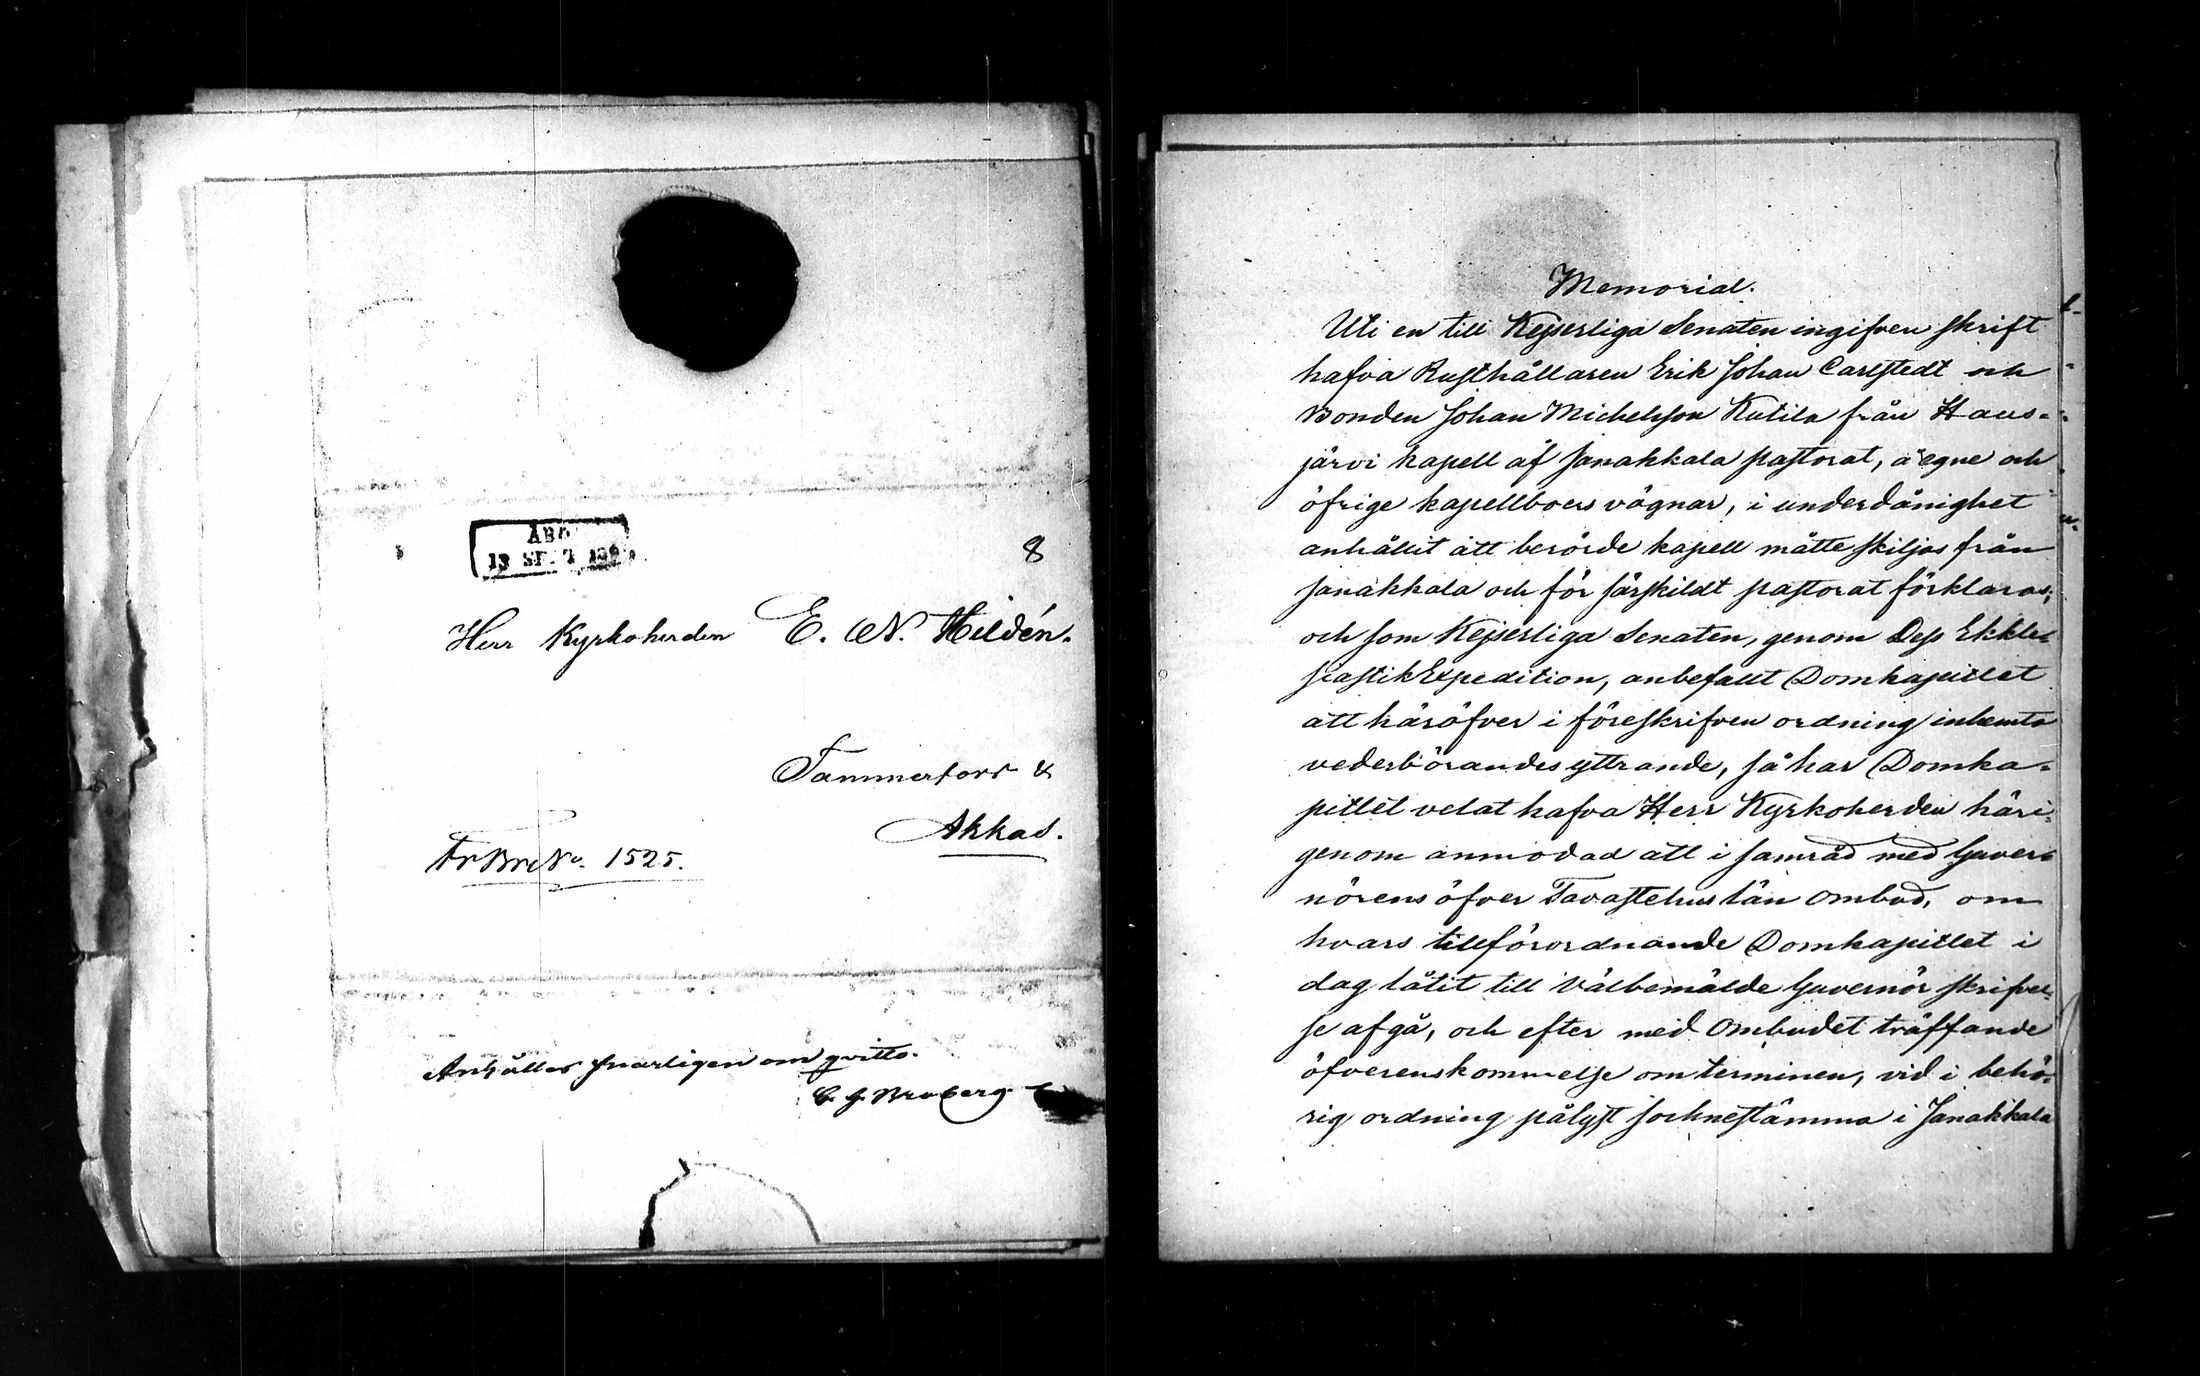 ÅBO
13 SEPT 18
8
Herr Kyrkoherden E. N. Hildén.
Tammerfors &
Akkas.
Fr Br No. 1525.
Anhålles snarligen om qvitto.
C. G. Broberg
Memorial.
Uti en till Kejserliga Senaten ingifven skrift
hafva Rusthållaren Erik Johan Carlstedt och
Bonden Johan Michelsson Kutila från Haus-
järvi kapell af Janakkala pastorat, å egne och
öfrige kapellboers vägnar, i underdånighet
anhållit att berörde kapell måtte skiljas från
Janakkala och för särskildt pastorat förklaras;
och som Kejserliga Senaten, genom Dess Ekkle-
siastikExpedition, anbefallt Domkapitlet
att häröfver i föreskrifven ordning inhemta
vederbörandes yttrande, så har Domka-
pitlet velat hafva Herr Kyrkoherden häri-
genom anmodad att i samråd med Guver-
nörens öfver Tavastehus län ombud, om
hvars tillförordnande Domkapitlet i
dag låtit till Välbemälde Guvernör skrifvel-
se afgå, och efter med Ombudet träffande
öfverenskommelse om terminen, vid i behö-
rig ordning pålyst sochnestämma i Janakkala